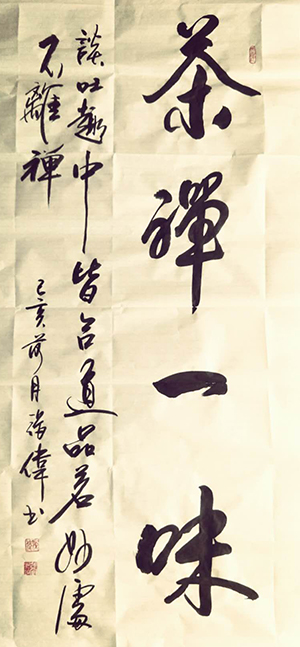 茶禪一味
談吐趣中皆合道品茗妙處
不離禅
己亥荷月偉书